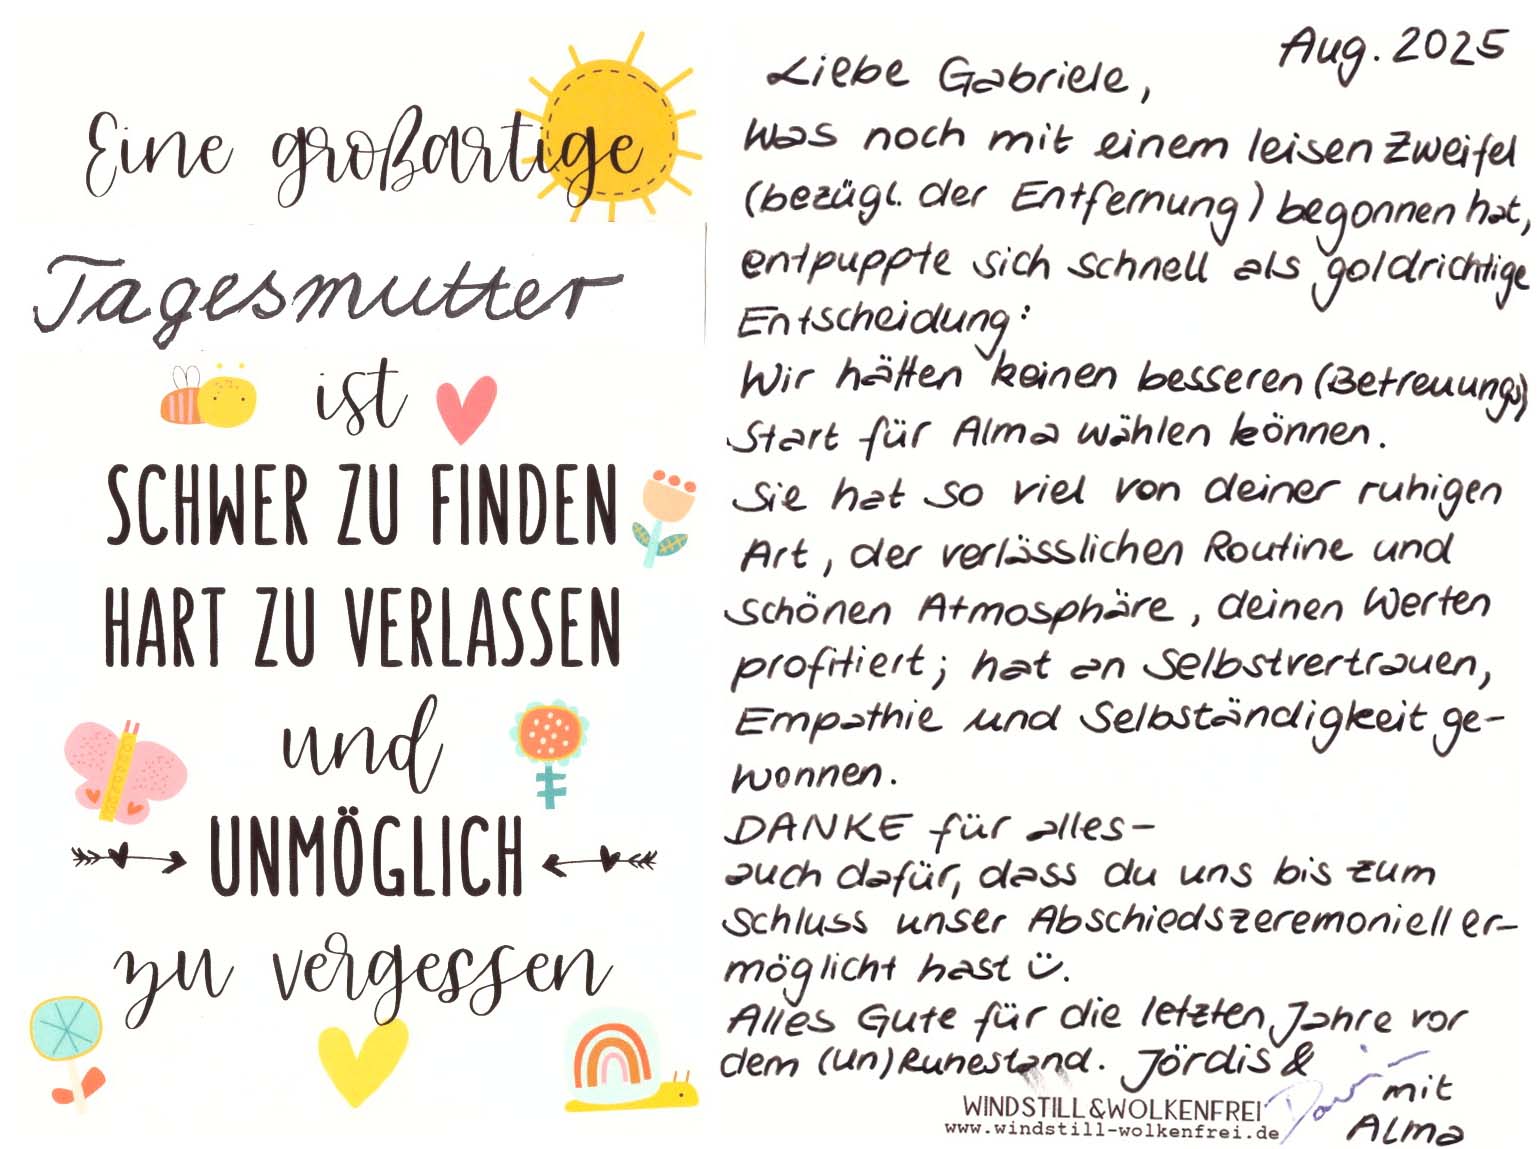 Eine großartige
Tagesmutter
ist
SCHWER ZU FINDEN
HART ZU VERLASSEN
und
UNMÖGLICH
zu vergessen
Aug. 2025
Liebe Gabriele,
was noch mit einem leisen Zweifel
(bezügl. der Entfernung) begonnen hat,
entpuppte sich schnell als goldrichtige
Entscheidung:
Wir hätten keinen besseren (Betreuungs)
Start für Alma wählen können.
Sie hat so viel von deiner ruhigen
Art, der verlässlichen Routine und
schönen Atmosphäre, deinen Werten
profitiert; hat an Selbstvertrauen,
Empathie und Selbständigkeit ge-
wonnen.
DANKE für alles-
auch dafür, dass du uns bis zum
Schluss unser Abschiedszeremoniell er-
möglicht hast ü.
Alles Gute für die letzten Jahre vor
dem (un)Ruhestand. Jördis &
mit
Alma
WINDSTILL&WOLKENFREI
www.windstill-wolkenfrei.de